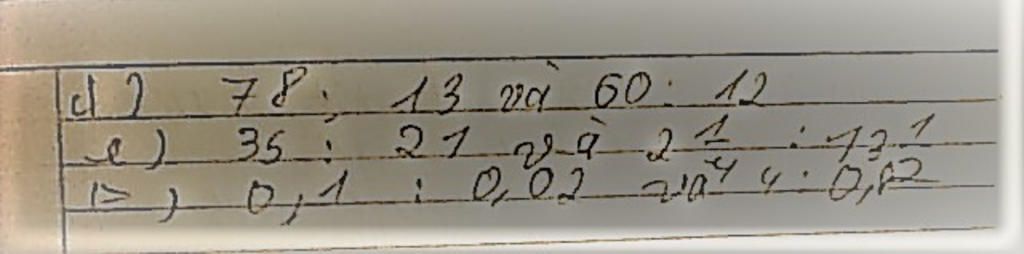 d) 78 : 13 và 60 : 12
e) 35 : 21 và 2 1/4 :
) 0,1 : 0,02 và 4 :